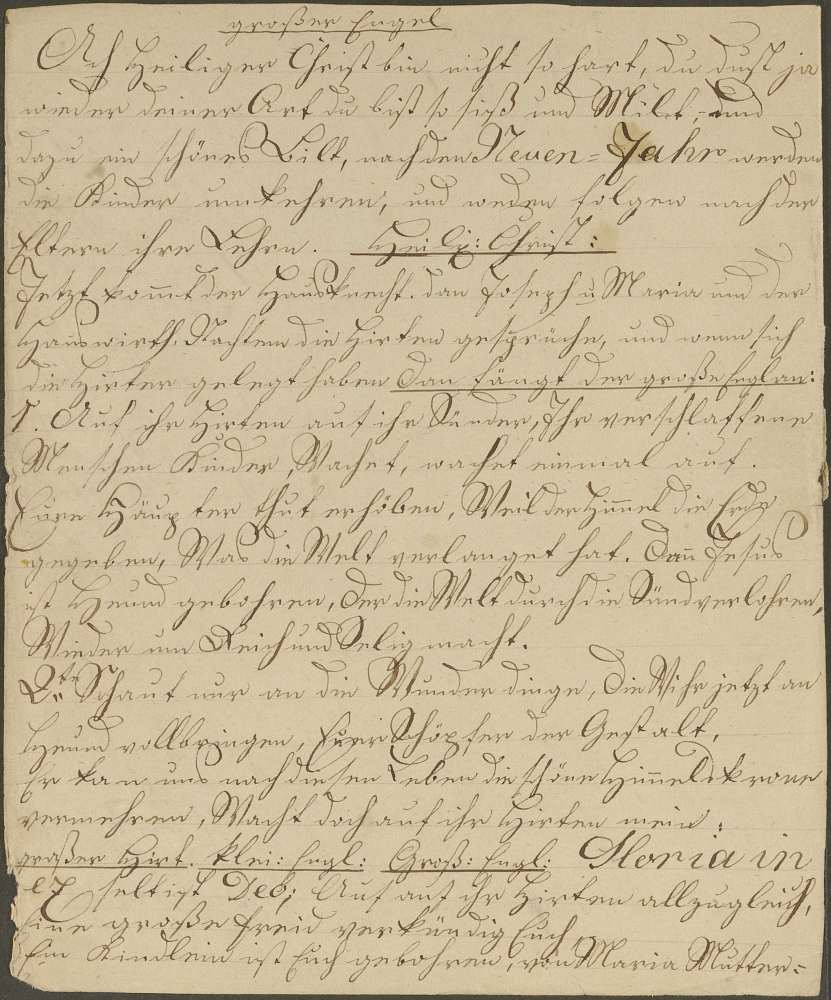 großer Engel
Ach Heiliger Christ bin nicht so hart, du dust ja
wieder deiner Art du bist so sieß und Milt, und
dazu ein schönes Bilt, nach den Neuen= Jahr werden
die Kinder umkehren, und weden folgen nach der
Eltern ihre Lehrn. Heilig: Christ:
Jetzt komt der Hausknecht. dan Joseph u Maria und der
Hauswirth. Nachtem die Hirten gesprüche, und wenn sich
die Hirten gelegt haben dan fängt der große Engl an:
1. Auf ihr Hirten auf ihr Sünder, Ihr verschlaffene
Menschen Kinder, Wachet, wachet einmal auf.
Eure Häupter thut erhöben, Weil der Himel die Erde
gegeben, Was die Welt verlanget hat. Dan Jesus
ist Heund gebohren, der die Welt durch die Sünd verlohren,
Wieder um Reich und Selig macht.
2te Schaut nur an die Wunder dinge, die Wihr jetzt an
Heund vollbringen, Eurer Schöpfer der Gestalt,
Er kan uns nach diesen Leben die schöne Himmelskrone
vermehren, Wacht doch auf ihr Hirten mein:
großer Hirt. klei: Engl: Groß: Engl: Gloria in
ex seltist Deo; Auf auf ihr Hirten allzugleich,
Eine große Freid verkündig Euch,
Ein Kindlein ist Euch gebohren, von Maria Mutter=